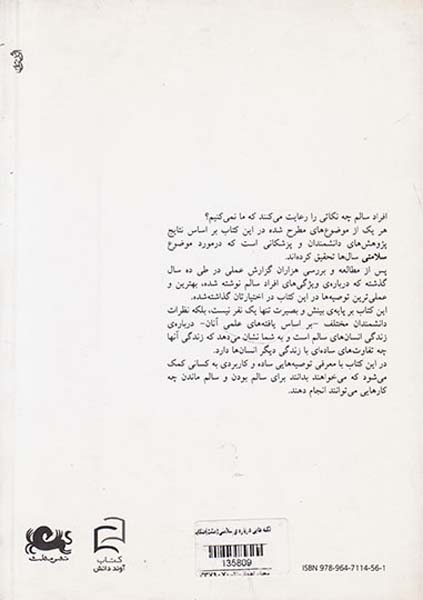 افراد سالم چه نکاتی را رعایت می‌کنند که ما نمی‌کنیم؟
هر یک از موضوع‌های مطرح شده در این کتاب بر اساس نتایج
پژوهش‌های دانشمندان و پزشکانی است که درمورد موضوع
سلامتی سال‌ها تحقیق کرده‌اند.
پس از مطالعه و بررسی هزاران گزارش عملی در طی ده سال
گذشته که درباره‌ی ویژگی‌های افراد سالم نوشته شده، بهترین و
عملی‌ترین توصیه‌ها در این کتاب در اختیارتان گذاشته‌شده.
این کتاب بر پایه‌ی بینش و بصیرت تنها یک نفر نیست، بلکه نظرات
دانشمندان مختلف -بر اساس یافته‌های علمی آنان- درباره‌ی
زندگی انسان‌های سالم است و به شما نشان می‌دهد که زندگی آنها
چه تفاوت‌های ساده‌ای با زندگی دیگر انسان‌ها دارد.
در این کتاب با معرفی توصیه‌هایی ساده و کاربردی به کسانی کمک
می‌شود که می‌خواهند بدانند برای سالم بودن و سالم ماندن چه
کارهایی می‌توانند انجام دهند.
نشر مثلث
کتاب
آوند دانش
135809
ISBN 978-964-7114-56-1